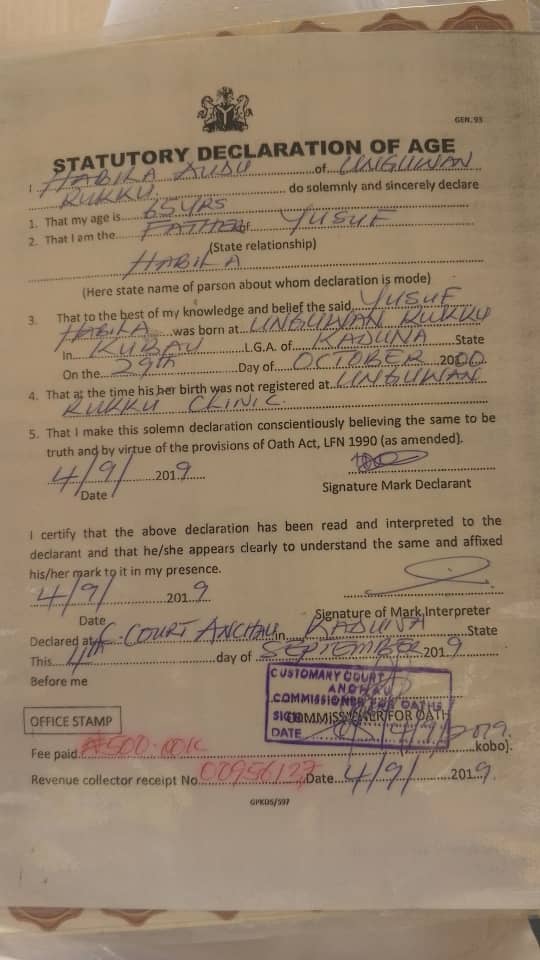 GEN. 93
STATUTORY DECLARATION OF AGE
I HABILA AUDU of UNGUWAN
RUKKU do solemnly and sincerely declare
1. That my age is 65YRS
2. That I am the FATHER of YUSUF
(State relationship)
HABILA
(Here state name of parson about whom declaration is mode)
3. That to the best of my knowledge and belief the said YUSUF
HABILA was born at UNGUWAN RUKKU
In KUBAU L.G.A. of KADUNA State
On the 29th Day of OCTOBER 2000
4. That at the time his her birth was not registered at UNGUWAN
RUKKU CLINIC.
5. That I make this solemn declaration conscientiously believing the same to be
truth and by virtue of the provisions of Oath Act, LFN 1990 (as amended).
4/9/ 2019
Date
Signature Mark Declarant
I certify that the above declaration has been read and interpreted to the
declarant and that he/she appears clearly to understand the same and affixed
his/her mark to it in my presence.
4/9/ 2019
Date
Signature of Mark Interpreter
Declared at C. COURT ANCHAU in KADUNA State
This 4th day of SEPTEMBER 2019
Before me
CUSTOMARY COURT
ANCHAU
COMMISSIONER FOR OATHS
SIGN
COMMISSIONER FOR OATH
DATE 4/9/2019.
OFFICE STAMP
Fee paid ₦500.00K kobo).
Revenue collector receipt No 00956127 Date 4/9/ 2019.
GPKDS/597